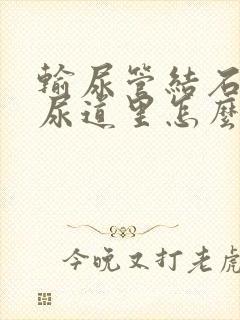 輸尿管結石
尿道里怎麼
今晚又打老虎